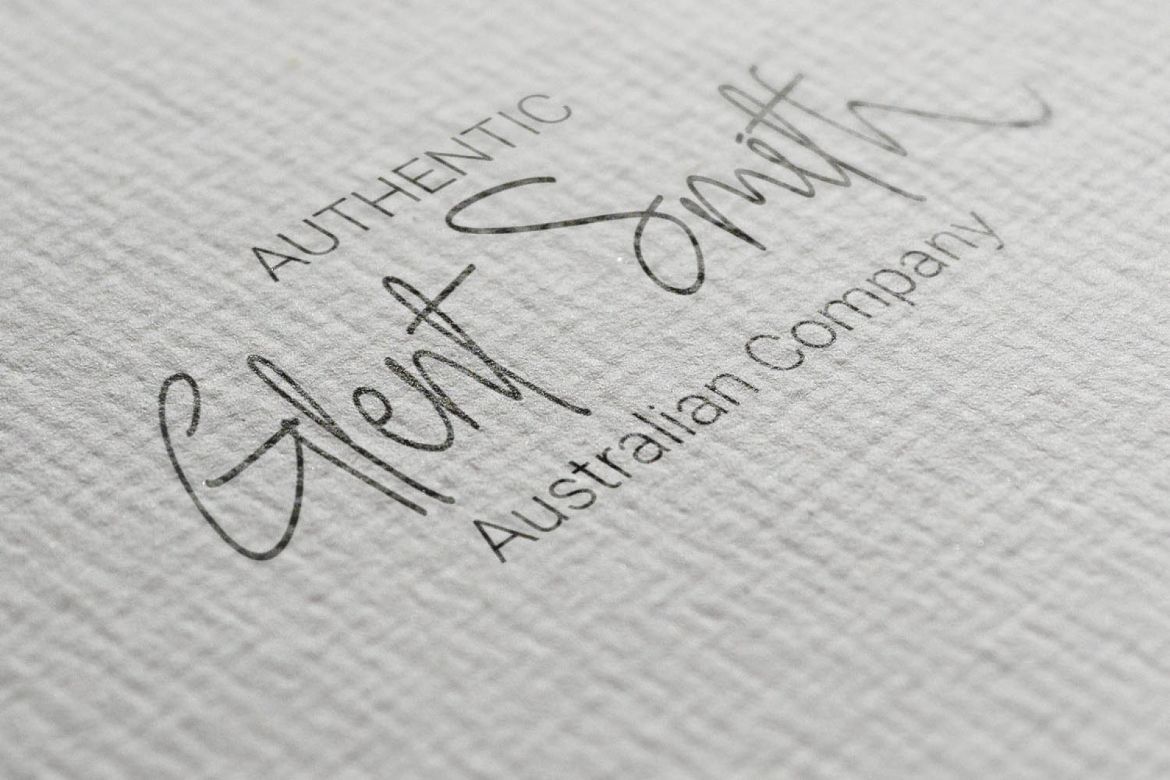 AUTHENTIC
Glent Smith
Australian Company